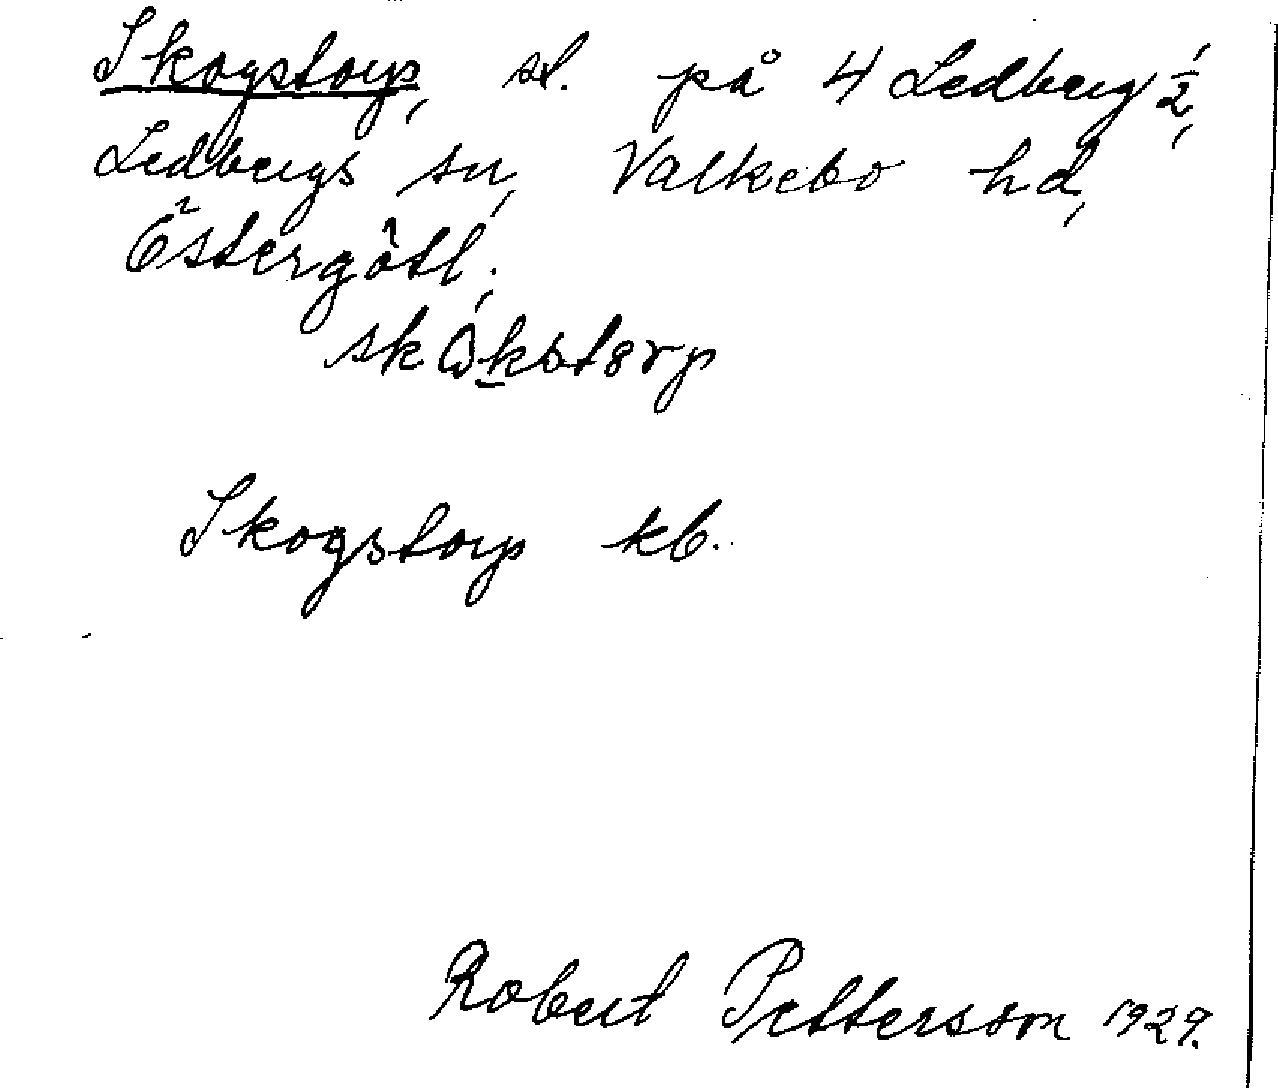 Skogstorp, sl. på 4 Ledberg ½,
Ledbergs sn, Valkebo hd,
Östergötl.
Skogstorp kb.
Robert Pettersson 1929.